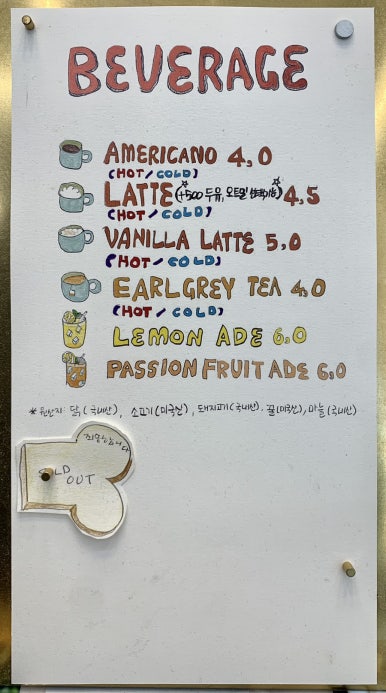 BEVERAGE
AMERICANO 4,0
(HOT/COLD)
LATTE (+500 두유, 오트밀 변경가능) 4,5
(HOT/COLD)
VANILLA LATTE 5,0
(HOT/COLD)
EARLGREY TEA 4,0
(HOT/COLD)
LEMON ADE 6,0
PASSION FRUIT ADE 6,0
*원산지: 닭(국내산), 소고기(미국산), 돼지고기(국내산), 꿀(미국산), 마늘(국내산)
죄송합니다
SOLD
OUT